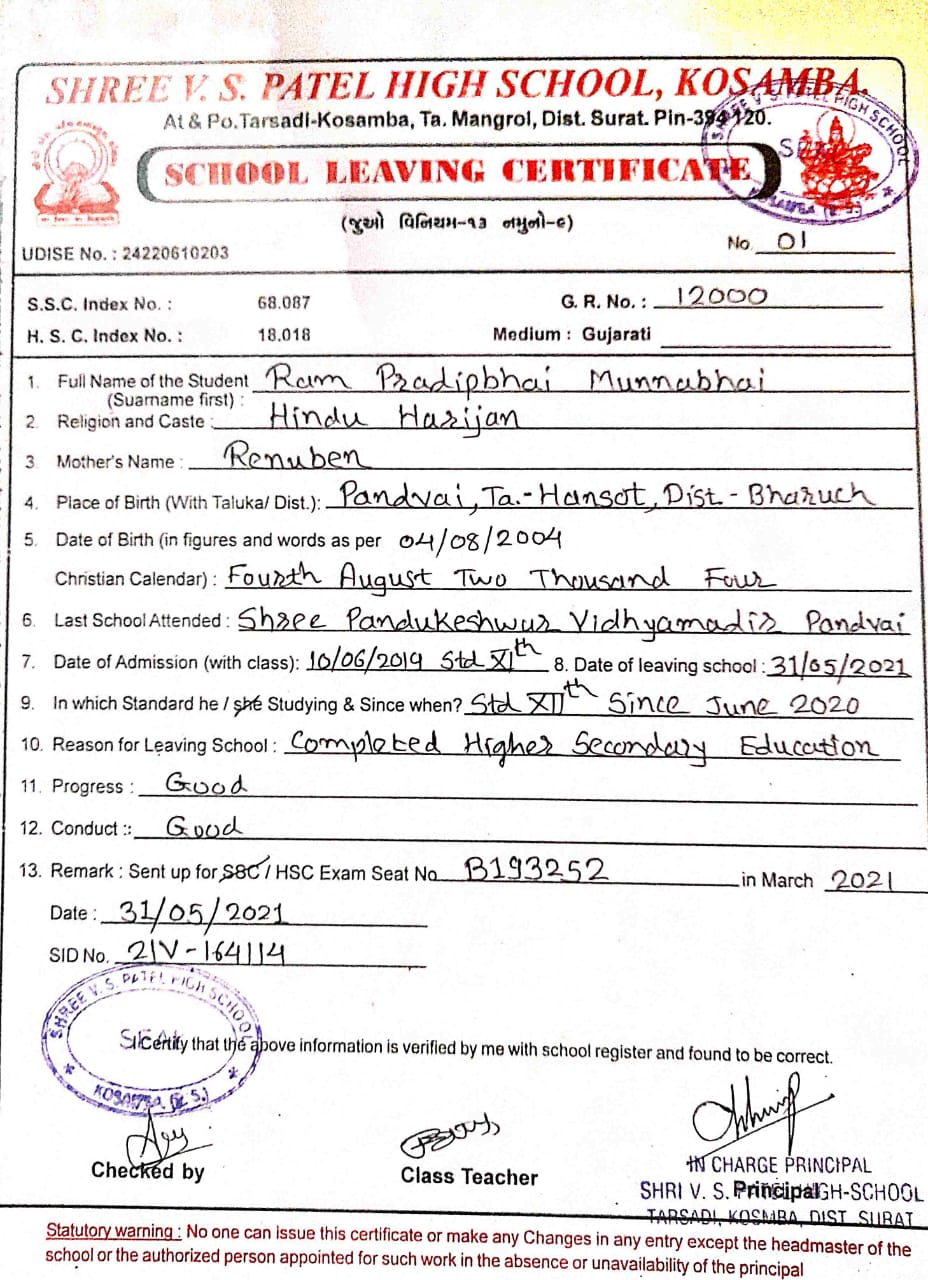 SHREE V. S. PATEL HIGH SCHOOL, KOSAMBA.
At & Po.Tarsadi-Kosamba, Ta. Mangrol, Dist. Surat. Pin-394 120.
SCHOOL LEAVING CERTIFICATE
(જુઓ વિનિયમ-૧૩ નમુનો-૯)
UDISE No. : 24220610203 No. 01
S.S.C. Index No. : 68.087 G. R. No. : 12000
H. S. C. Index No. : 18.018 Medium : Gujarati
1. Full Name of the Student Ram Pradipbhai Munnabhai
(Suarname first) :
2. Religion and Caste : Hindu Harijan
3. Mother's Name : Renuben
4. Place of Birth (With Taluka/ Dist.): Pandvai, Ta.-Hansot, Dist.- Bharuch
5. Date of Birth (in figures and words as per 04/08/2004
Christian Calendar) : Fourth August Two Thousand Four
6. Last School Attended : Shree Pandukeshwur Vidhyamadir Pandvai
7. Date of Admission (with class): 10/06/2019 Std XIth 8. Date of leaving school : 31/05/2021
9. In which Standard he / she Studying & Since when? Std XIIth Since June 2020
10. Reason for Leaving School : Completed Higher Secondary Education
11. Progress : Good
12. Conduct :: Good
13. Remark : Sent up for SSC / HSC Exam Seat No B193252 in March 2021
Date : 31/05/2021
SID No. 21V-164114
SHREE V. S. PATEL HIGH SCHOOL
SEAL
KOSAMBA.
I Certify that the above information is verified by me with school register and found to be correct.
Checked by Class Teacher Principal
IN CHARGE PRINCIPAL
SHRI V. S. HIGH-SCHOOL
TARSADI, KOSMBA, DIST. SURAT
Statutory warning : No one can issue this certificate or make any Changes in any entry except the headmaster of the
school or the authorized person appointed for such work in the absence or unavailability of the principal